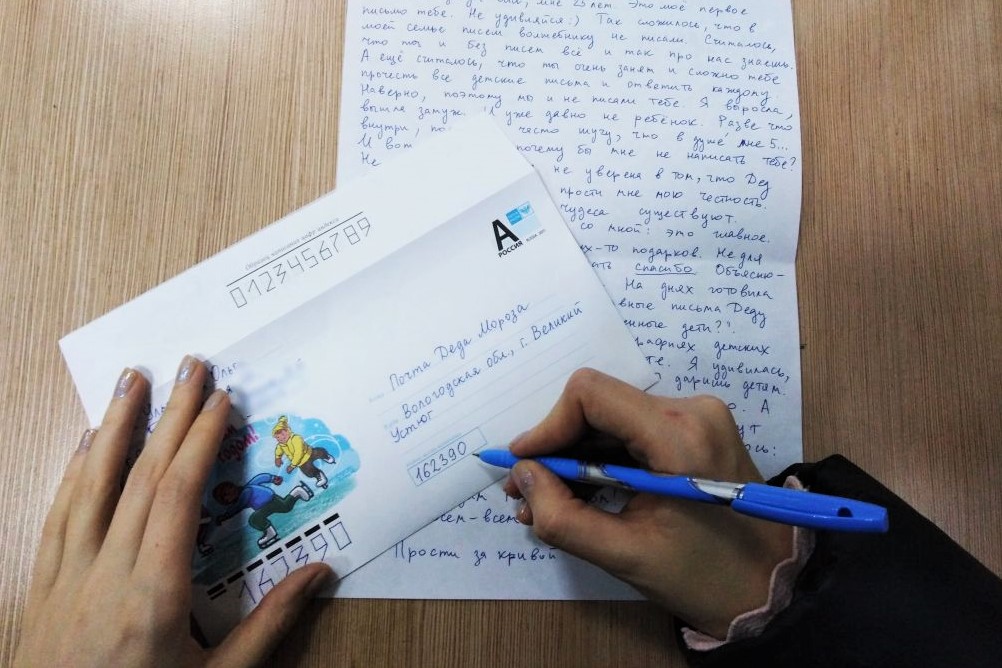 мне 25 лет. Это моё первое
письмо тебе. Не удивляйся:) Так сложилось, что в
моей семье писем волшебнику не писали. Считалось,
что ты и без писем всё и так про нас знаешь.
А ещё считалось, что ты очень занят и сложно тебе
прочесть все детские письма и ответить каждому.
Наверно, поэтому мы и не писали тебе. Я выросла,
вышла замуж. Я уже давно не ребёнок. Разве что
внутри, по часто шучу, что в душе мне 5...
И вот почему бы мне не написать тебе?
Не не уверена в том, что Дед
прости мне мою честность.
чудеса существуют.
со мной: это главное.
их-то подарков. Не для
ать спасибо. Объясню-
На днях готовила
вные письма Деду
енные дети?".
графиях детских
те. Я удивилась,
? даришь детям.
о. А
ут
ось:
сем-всем
Прости за кривой
0123456789
А
РОССИЯ
Почта Деда Мороза
Вологодская обл., г. Великий
Устюг
162390
Ольг
годом!
162390